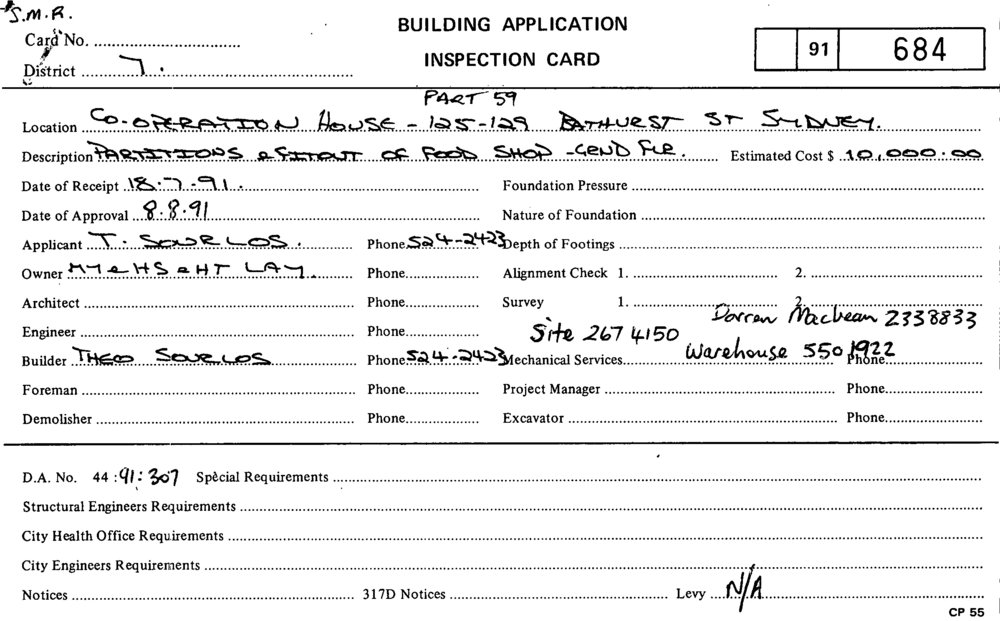 S.M.R.
BUILDING APPLICATION
INSPECTION CARD
91 684
Card No.
District 7.
PART 59
Location CO-OPERATION HOUSE - 125-129 BATHURST ST SYDNEY.
Description PARTITIONS & FITOUT OF FOOD SHOP - GRND FLR. Estimated Cost $ 10,000.00
Date of Receipt 18.7.91. Foundation Pressure
Date of Approval 8.8.91 Nature of Foundation
Applicant T. SOURLOS. Phone 524-2423 Depth of Footings
Owner MY & HS & HT LAY Phone Alignment Check 1. 2.
Architect Phone Survey 1. 2.
Darren Macbean 2338833
Engineer Phone Site 267 4150
Builder THEO SOURLOS Phone 524-2423 Mechanical Services Warehouse 550 1922 Phone
Foreman Phone Project Manager Phone
Demolisher Phone Excavator Phone
D.A. No. 44:91:307 Special Requirements
Structural Engineers Requirements
City Health Office Requirements
City Engineers Requirements
Notices 317D Notices Levy N/A
CP 55